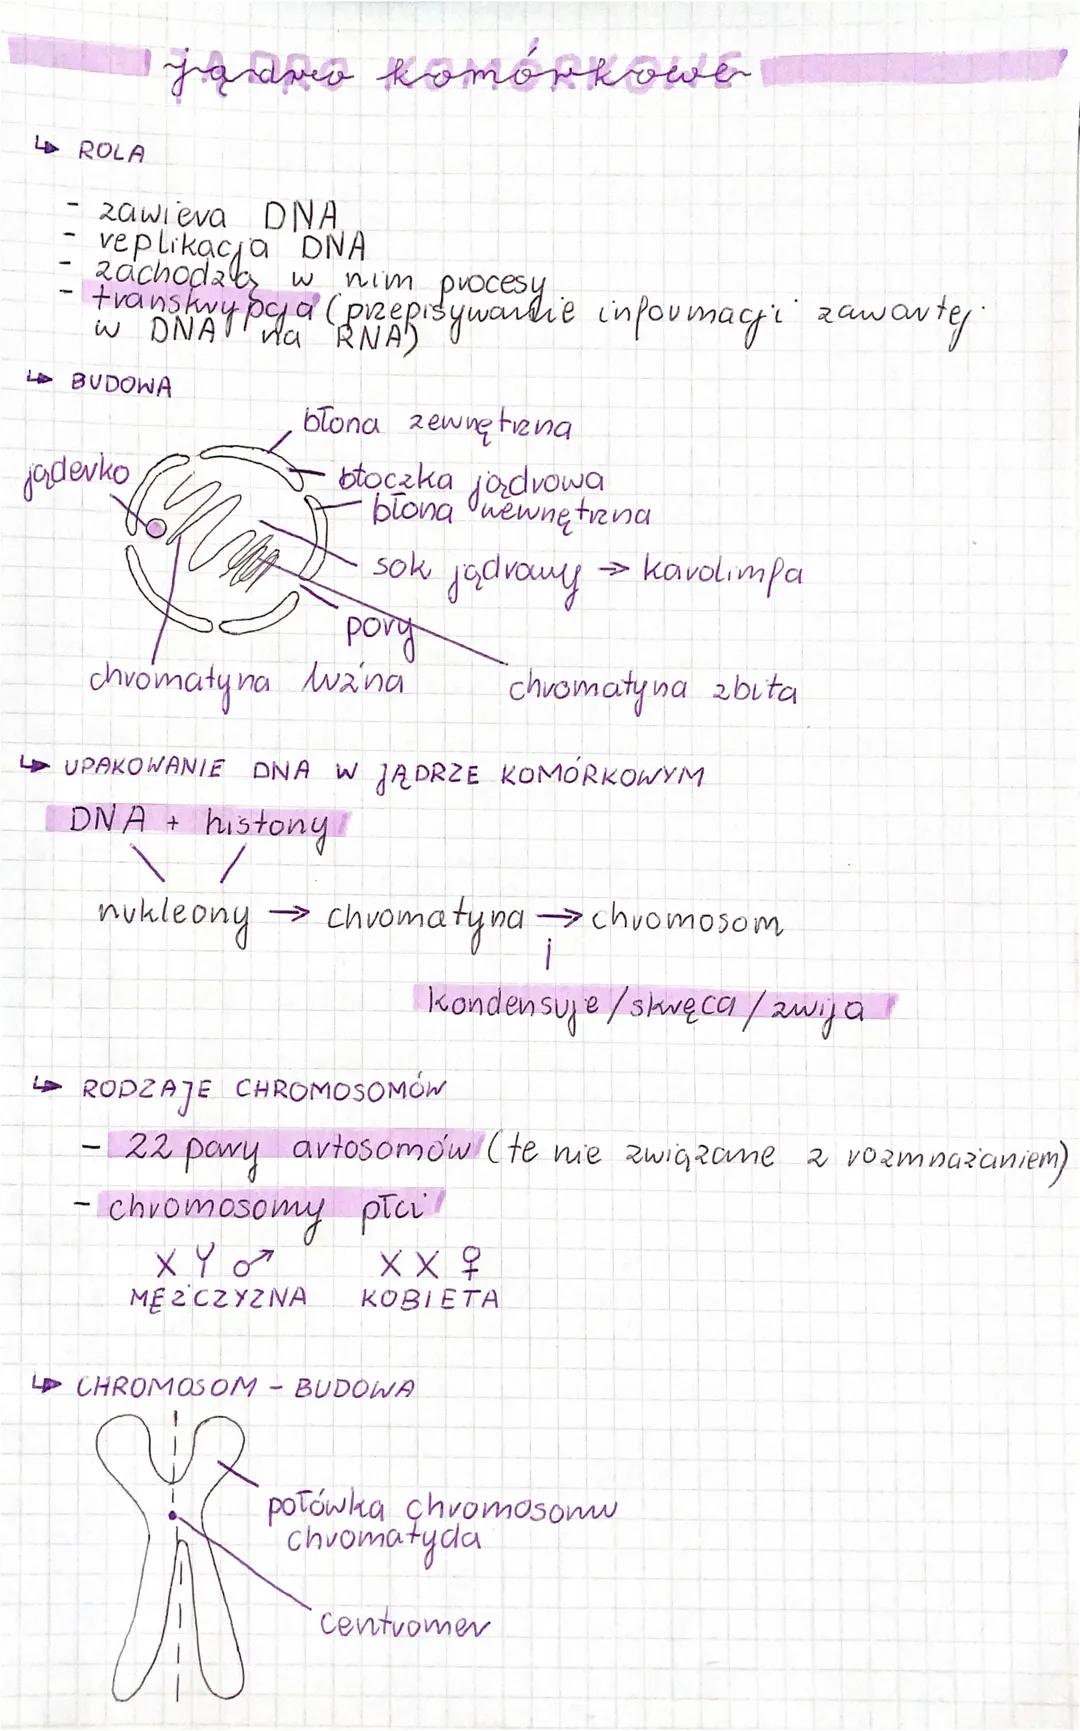 jądro komórkowe
ROLA
- zawiera DNA
- replikacja DNA
- zachodzą w nim procesy
- transkrypcja (przepisywanie informacji zawartej
w DNA na RNA)
BUDOWA
błona zewnętrzna
jąderko
otoczka jądrowa
błona wewnętrzna
sok jądrowy → karolimfa
pory
chromatyna luźna
chromatyna zbita
UPAKOWANIE DNA W JĄDRZE KOMÓRKOWYM
DNA + histony
nukleony → chromatyna → chromosom
kondensuje / skręca / zwija
RODZAJE CHROMOSOMÓW
- 22 pary autosomów (te nie związane z rozmnażaniem)
- chromosomy płci
XY ♂ XX ♀
MĘŻCZYZNA KOBIETA
CHROMOSOM - BUDOWA
połówka chromosomu
chromatyda
centromer